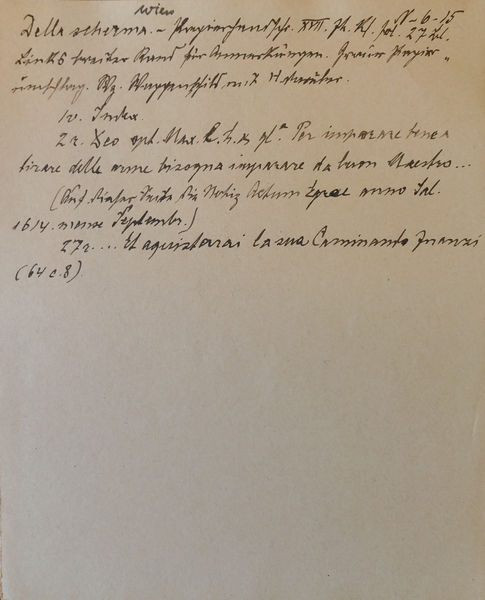 Wien
Della scherma. – Papierhandschr. XVII. Jh. Kl. fol. 27 Bl.
V-6-15
Links breiter Rand für Anmerkungen. Grauer Papier„
umschlag. Wz. Wappenschild mit H darüber.
1v. Index.
2r. Deo opt. Max. Per imparare bene a
tirare delle arme bisogna imparare da buon Maestro...
(Auf dieser Seite die Notiz Actum anno Sal.
1614. mense Septembr.)
27r. ... Et aquistarai la sua Caminando Inanzi
(64 c. 8).